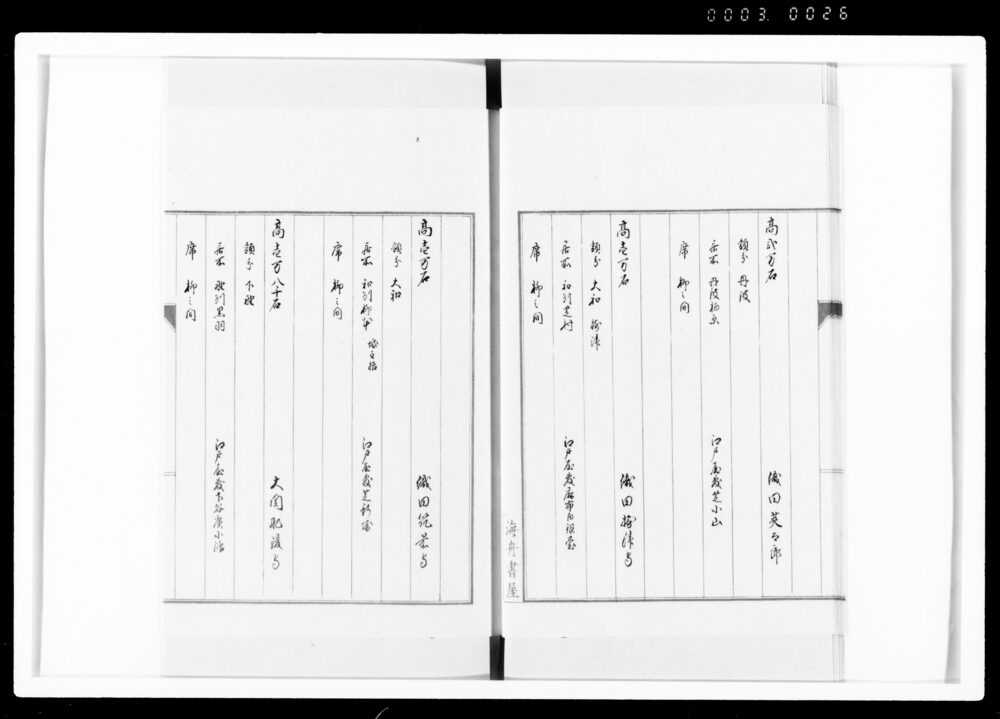 0003. 0026
高弐万石
織田英太郎
領分 丹波
居所 丹波柏原
江戸屋敷芝小山
席 柳之間
高壱万石
織田摂津守
領分 大和 摂津
居所 和州芝村
江戸屋敷麻布白銀台
席 柳之間
海舟書屋
高壱万石
織田筑前守
領分 大和
居所 和州柳本 城主格
江戸屋敷芝新堀
席 柳之間
高壱万八千石
大関肥後守
領分 下野
居所 野州黒羽
江戸屋敷下谷広小路
席 柳之間